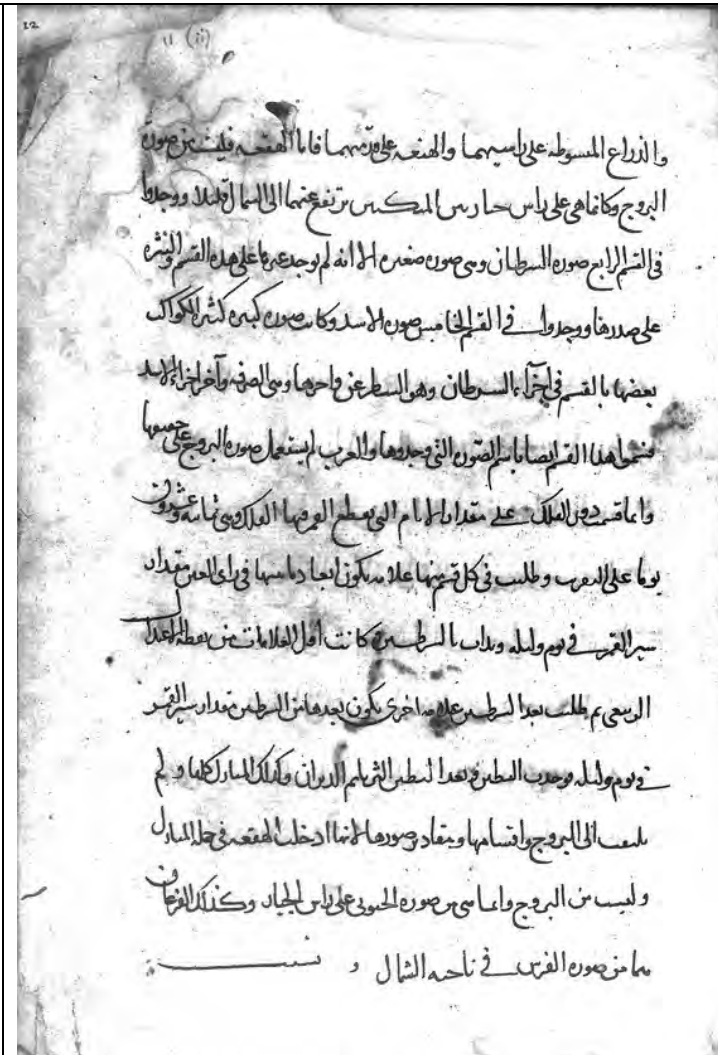 12
11 (ii)
والذراع المبسوطه على راسيهما والهنعه على قدميهما فاما الهقعه فليست من صورة
البروج وكانما هي على راس حارس المنكبين ترتفع عنهما الى الشمال قليلا ووجدوا
في القسم الرابع صوره السرطان وهي صوره صغيره الا انه لم يوجد غيرها على هذه القسم والنثره
على صدرها ووجدوا في القسم الخامس صوره الاسد وكانت صوره كبيره كثيره الكواكب
بعضها بالقسم في اجزاء السرطان وهو السطر عن واخرها وهي الصرفه وآخر اجزاء الاسد
فسموا هذا القسم ايضا باسم الصوره التي وجدوها والعرب لم يستعمل صوره البروج على جميعها
وانما قسمت دور الفلك على مقدار الايام التي يقطع القمر فيها الفلك وهي ثمانيه وعشرون
يوما على التقريب وطلبت في كل قسم منها علامه يكون ابعاد ما بينها في راي العين مقدار
سير القمر في يوم وليله وبدات بالشرطين وكانت اول العلامات من نقطه الاعتدال
الربيعي ثم طلبت بعد الشرطين علامه اخرى يكون بعدها من الشرطين مقدار سير القمر
في يوم وليله فوجدت البطين وبعد البطين الثريا ثم الدبران وكذلك المنازل كلها ولم
يلتفت الى البروج واقسامها ومقادير صورها لانها ادخلت الهقعه في جمله المنازل
وليست من البروج وانما هي من صوره الجنوبي على راس الجبار وكذلك الفرغان
هما من صوره الفرس في ناحيه الشمال و